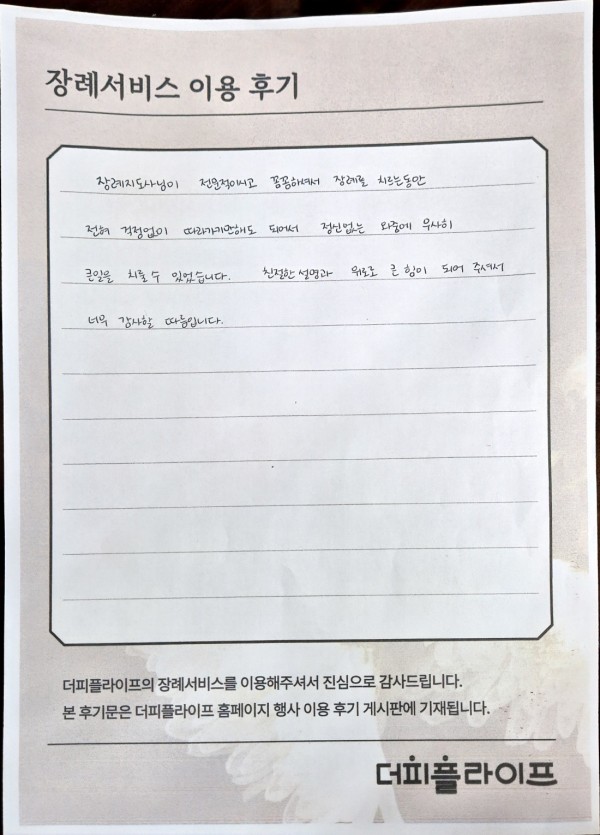 장례서비스 이용 후기
장례지도사님이 전문적이시고 꼼꼼하셔서 장례를 치르는동안
전혀 걱정없이 따라가기만해도 되어서 정신없는 와중에 무사히
큰일을 치룰 수 있었습니다. 친절한 설명과 위로로 큰 힘이 되어 주셔서
너무 감사할 따름입니다.
더피플라이프의 장례서비스를 이용해주셔서 진심으로 감사드립니다.
본 후기문은 더피플라이프 홈페이지 행사 이용 후기 게시판에 기재됩니다.
더피플라이프